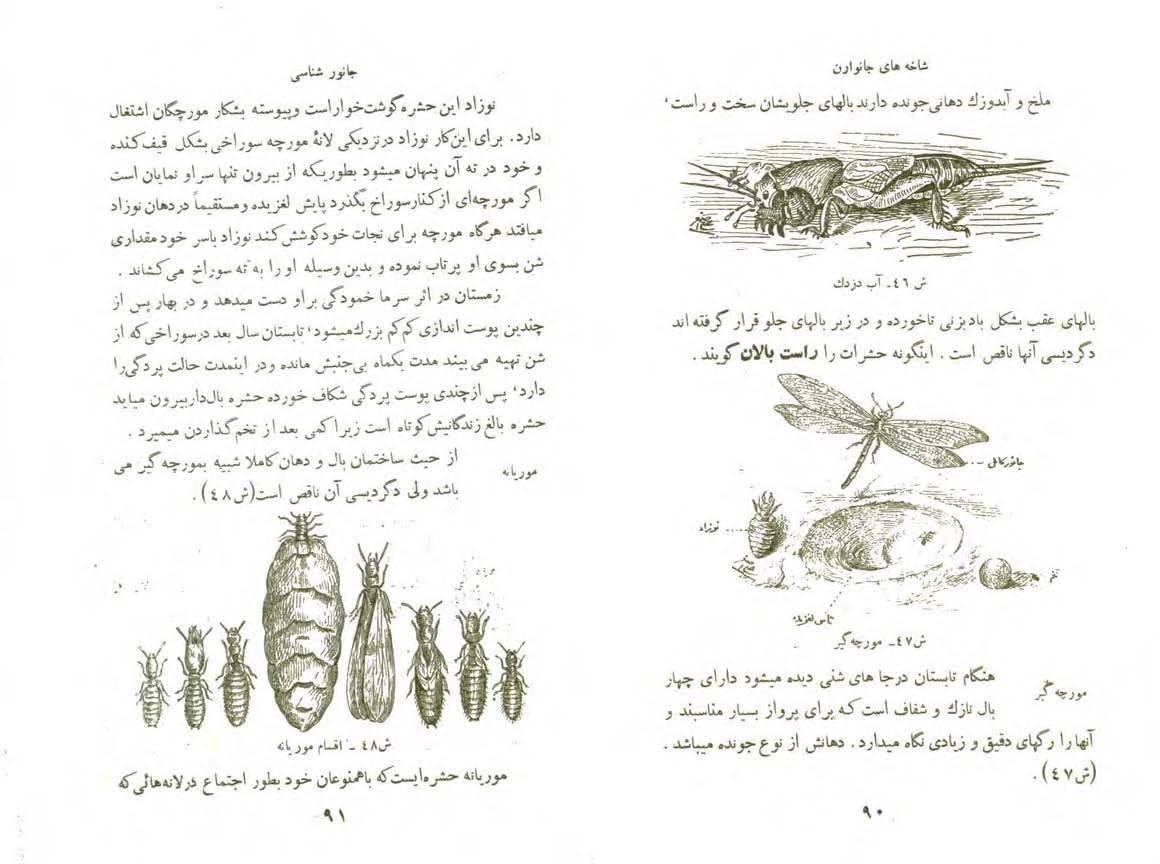 شاخه های جانوارن
ملخ و آبدوزك دهانی جونده دارند بالهای جلویشان سخت و راست،
ش ٤٦ـ آب دزدك
بالهای عقب بشکل بادبزنی تاخورده و در زیر بالهای جلو قرار گرفته اند
دگردیسی آنها ناقص است . اینگونه حشرات را راست بالان گویند .
جانور کامل
نوزاد
تخم
تاس لغزنده
ش٤٧ـ مورچه گیر
مورچه گیر
هنگام تابستان درجا های شنی دیده میشود دارای چهار
بال نازك و شفاف است که برای پرواز بسیار مناسبند و
آنها را رگهای دقیق و زیادی نگاه میدارد . دهانش از نوع جونده میباشد .
(ش ٤٧) .
٩٠
جانور شناسی
نوزاد این حشره گوشت خوار است وپیوسته بشکار مورچگان اشتغال
دارد . برای این کار نوزاد درنزدیکی لانهٔ مورچه سوراخی بشکل قیف کنده
و خود در ته آن پنهان میشود بطوریکه از بیرون تنها سر او نمایان است
اگر مورچه‌ای از کنار سوراخ بگذرد پایش لغزیده و مستقیماً در دهان نوزاد
میافتد هرگاه مورچه برای نجات خود کوشش کند نوزاد باسر خود مقداری
شن بسوی او پرتاب نموده و بدین وسیله او را به ته سوراخ می کشاند .
زمستان در اثر سرما خمودگی براو دست میدهد و در بهار پس از
چندین پوست اندازی کم کم بزرك میشود، تابستان سال بعد درسوراخی که از
شن تهیه می بیند مدت یکماه بی جنبش مانده ودر اینمدت حالت پردگی را
دارد، پس از چندی پوست پردگی شکاف خورده حشره بال دار بیرون میاید
حشره بالغ زندگانیش کوتاه است زیرا کمی بعد از تخم گذاردن میمیرد .
موریانه
از حیث ساختمان بال و دهان کاملا شبیه بمورچه گیر می
باشد ولی دگردیسی آن ناقص است (ش ٤٨) .
ش٤٨ ـ اقسام موریانه
موریانه حشره ایست که باهمنوعان خود بطور اجتماع درلانه هائی که
٩١